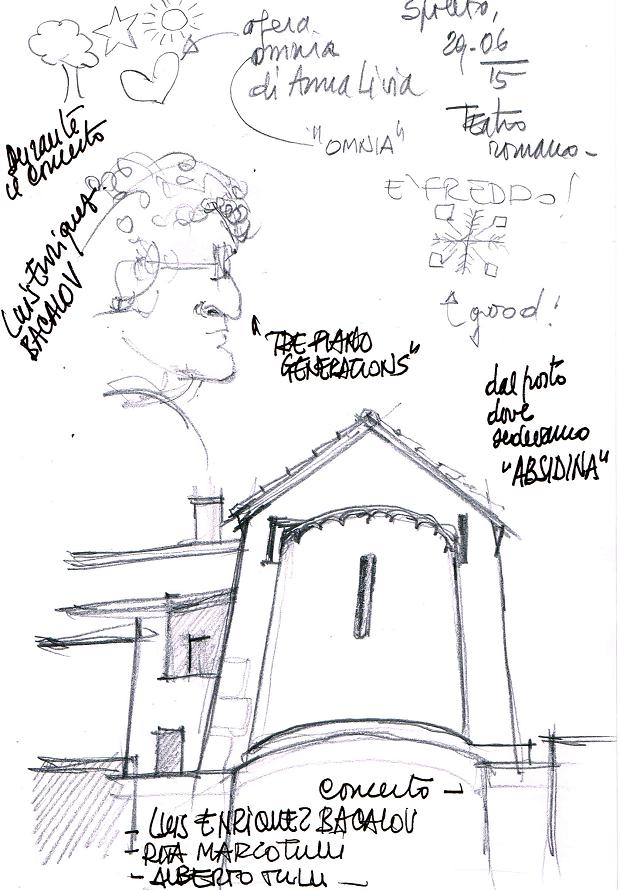 opera
omnia
di Anna Livia
"OMNIA"
Spoleto,
29-06
15
Teatro
romano-
Durante
il concerto
E' FREDDO!
Luis Enriquez
BACALOV
good!
"TRE-PIANO
GENERATIONS"
dal posto
dove
sedevamo
"ABSIDINA"
concerto -
- LUIS ENRIQUEZ BACALOV
- RITA MARCOTULLI
- ALBERTO